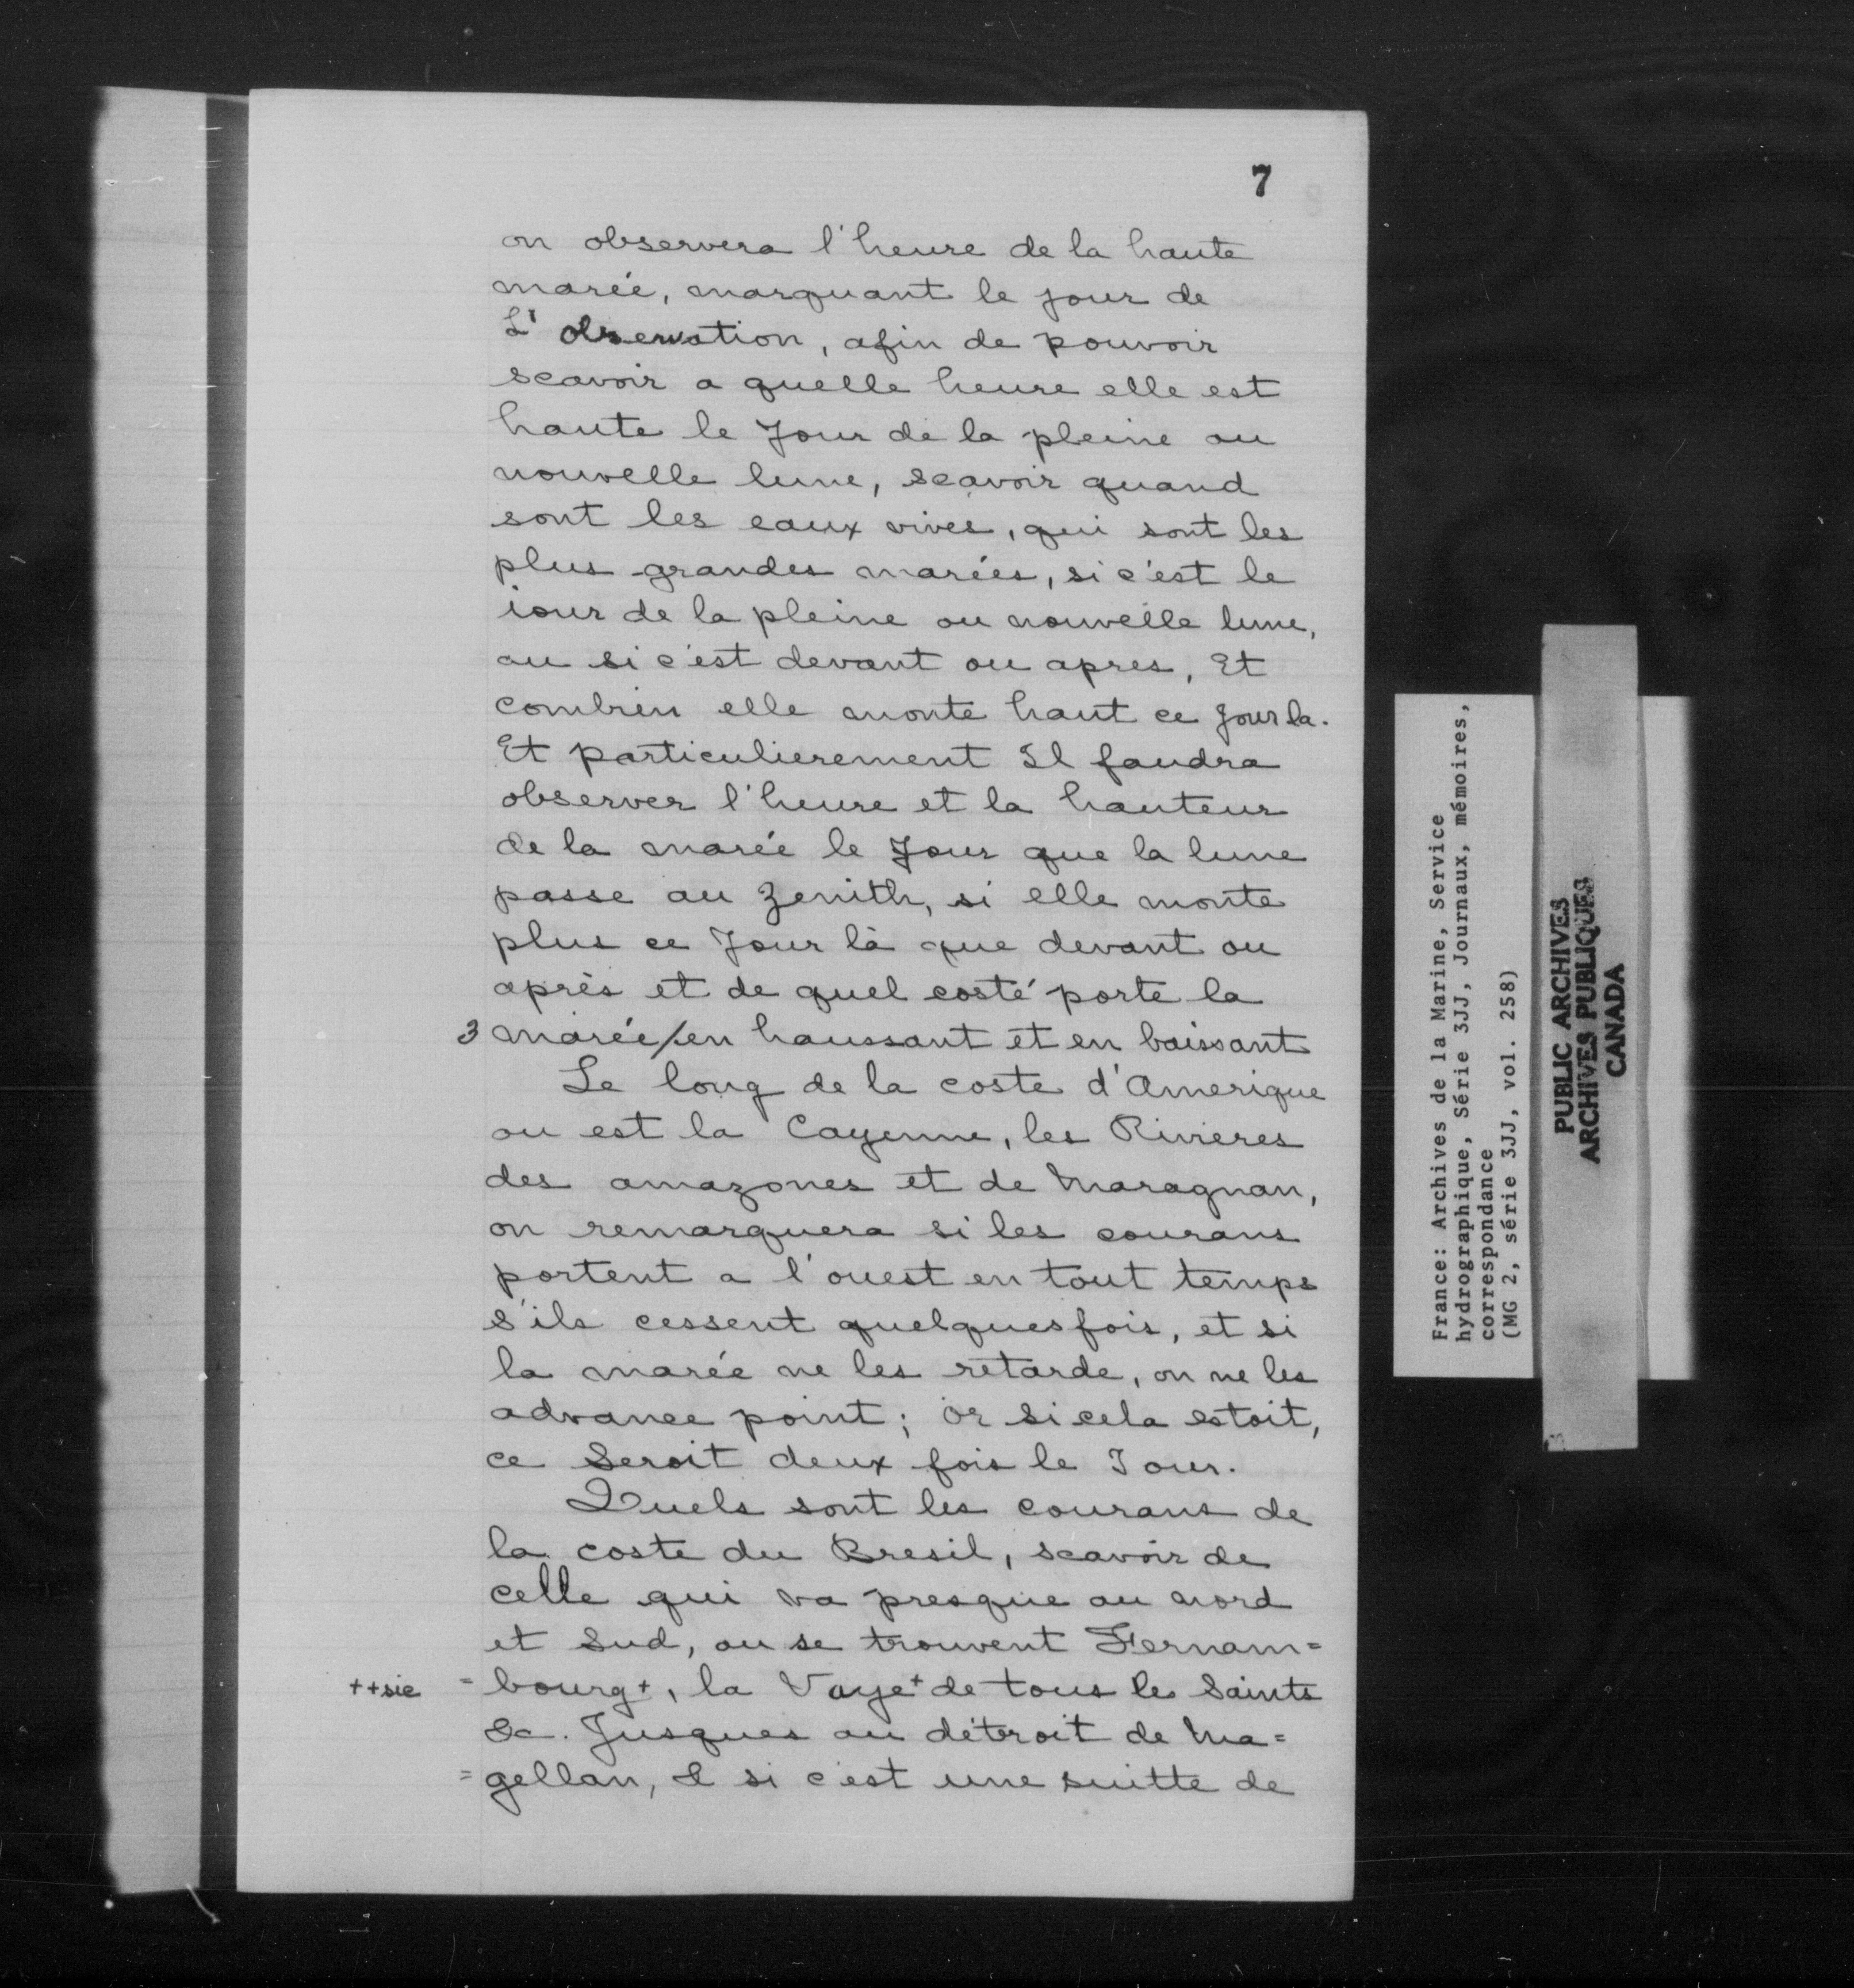 7
on observera l'heure de la haute
marée, marquant le jour de
L'observation, afin de pouvoir
scavoir a quelle heure elle est
haute le Jour de la pleine ou
nouvelle lune, scavoir quand
sont les eaux vives, qui sont les
plus grandes marées, si c'est le
iour de la pleine ou nouvelle lune,
ou si c'est devant ou apres, Et
combien elle monte haut ce jour la.
Et particulierement Il faudra
observer l'heure et la hauteur
de la marée le Jour que la lune
passe au Zenith, si elle monte
plus ce Jour là que devant ou
après et de quel costé porte la
3 marée/en haussant et en baissant
Le long de la coste d'Amerique
ou est la Cayenne, les Rivieres
des amazones et de Maragnan,
on remarquera si les courans
portent a l'ouest en tout temps
s'ils cessent quelquesfois, et si
la marée ne les retarde, on ne les
advance point; Or si cela estoit,
ce Seroit deux fois le Jour.
Quels sont les courans de
la coste du Bresil, scavoir de
celle qui va presque au nord
et Sud, ou se trouvent Fernam=
++sic =bourg+, la Vaye+ de tous les Saints
&c. Jusques au détroit de Ma=
=gellan, & si c'est une suitte de
France: Archives de la Marine, Service
hydrographique, Série 3JJ, Journaux, mémoires,
correspondance
(MG 2, série 3JJ, vol. 258)
PUBLIC ARCHIVES
ARCHIVES PUBLIQUES
CANADA